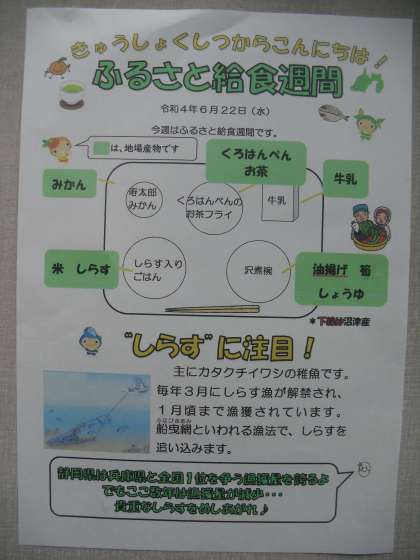 きゅうしょくしつからこんにちは！
ふるさと給食週間
令和4年6月22日（水）
今週はふるさと給食週間です。
は、地場産物です
くろはんぺん
お茶
みかん
牛乳
寿太郎
みかん
くろはんぺんの
お茶フライ
牛乳
米　しらす
しらす入り
ごはん
沢煮椀
油揚げ　筍
しょうゆ
＊下線は沼津産
“しらす”に注目！
主にカタクチイワシの稚魚です。
毎年3月にしらす漁が解禁され、
1月頃まで漁獲されています。
船曳網といわれる漁法で、しらすを
追い込みます。
静岡県は兵庫県と全国1位を争う漁獲量を誇るよ
でもここ数年は漁獲量が減少・・・
貴重なしらすをめしあがれ♪